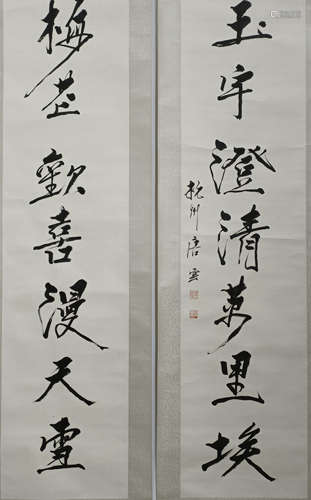 玉宇澄清萬里埃
杭州唐雲
梅芒歡喜漫天雪